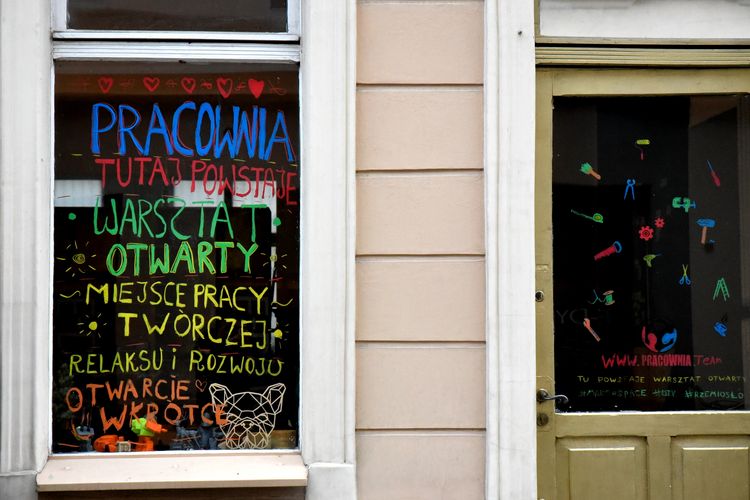 PRACOWNIA
TUTAJ POWSTAJE
WARSZTAT
OTWARTY
MIEJSCE PRACY
TWÓRCZEJ
RELAKSU i ROZWOJU
OTWARCIE
WKRÓTCE
WWW.PRACOWNIA.Team
TU POWSTAJE WARSZTAT OTWARTY
#MAKERSPACE #DIY #RZEMIOSŁO